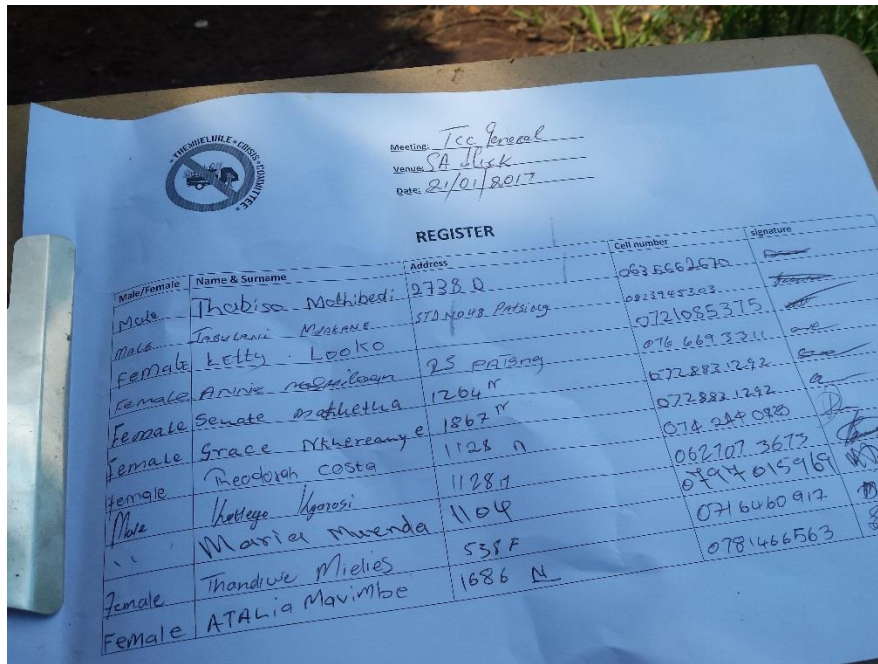 THEMBELIHLE • CRISIS • COMMITTEE •
Meeting: Tcc General
Venue: SA Block
Date: 21/01/2017
REGISTER
Male/Female Name & Surname Address Cell number signature
Male Thabiso Mothibedi 2738 D 0635662670
Male STD NO 48 Patsing
Female Letty Looko 0721085375
Female Annie 25 0766693311
Female Senate 1264 N 0728831292
Female Grace 1867 N 0728831292
Female Theodorah Costa 1128 N
Male 1128 0627073673
" Maria Mwenda 1104 0797015969
Female Thandiwe Mielies 538 F 0716460912
Female ATALia Mavimbe 1686 N 0781466563